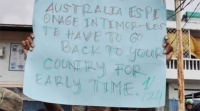 AUSTRALIA ESPE
ONAGE IN TIMOR-LES
TE HAVE TO GO
BACK TO YOUR
COUNTRY FOR
EARLY TIME.